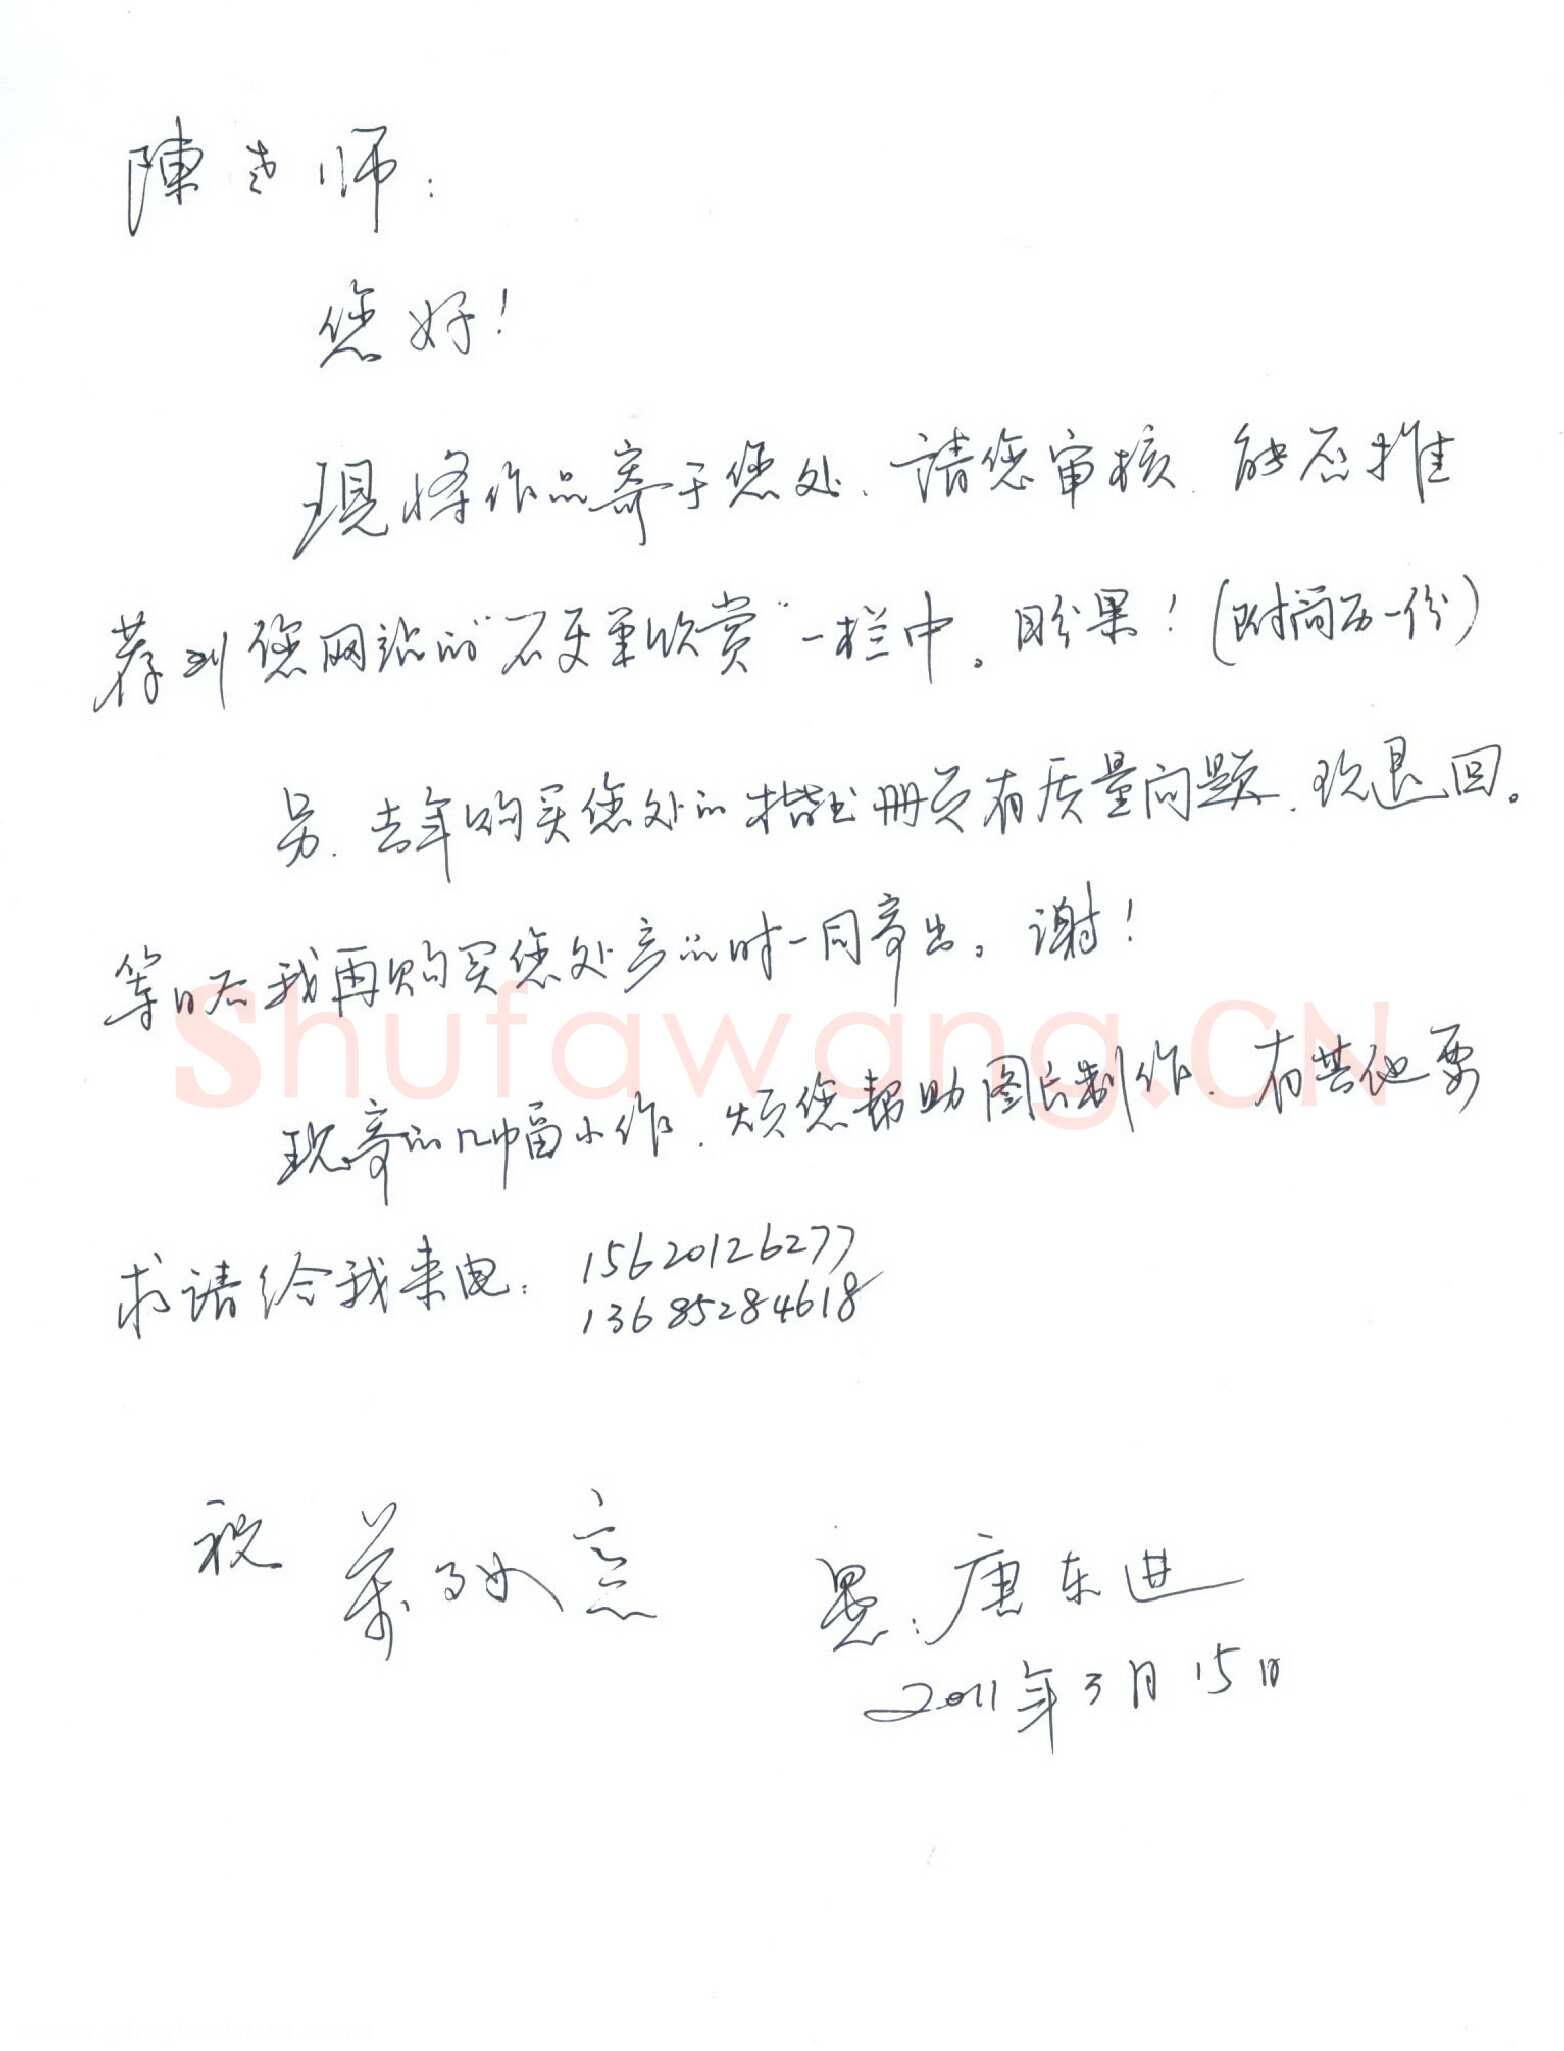 陳老师：
您好！
现将作品寄于您处、請您审核、能否推
荐到您网站的"名更重欣赏"一栏中。盼果！（附简历一份）
另、去年购买您处的楷书册页有质量问题、现退回。
等日后我再购买您处产品时一同寄出。谢！
Shufawang.CN
现寄的几幅小作、烦您帮助图片制作、有其他要
求请给我来电：15620126277
13685284618
祝 万如意
愚：唐东进
2011年3月15日